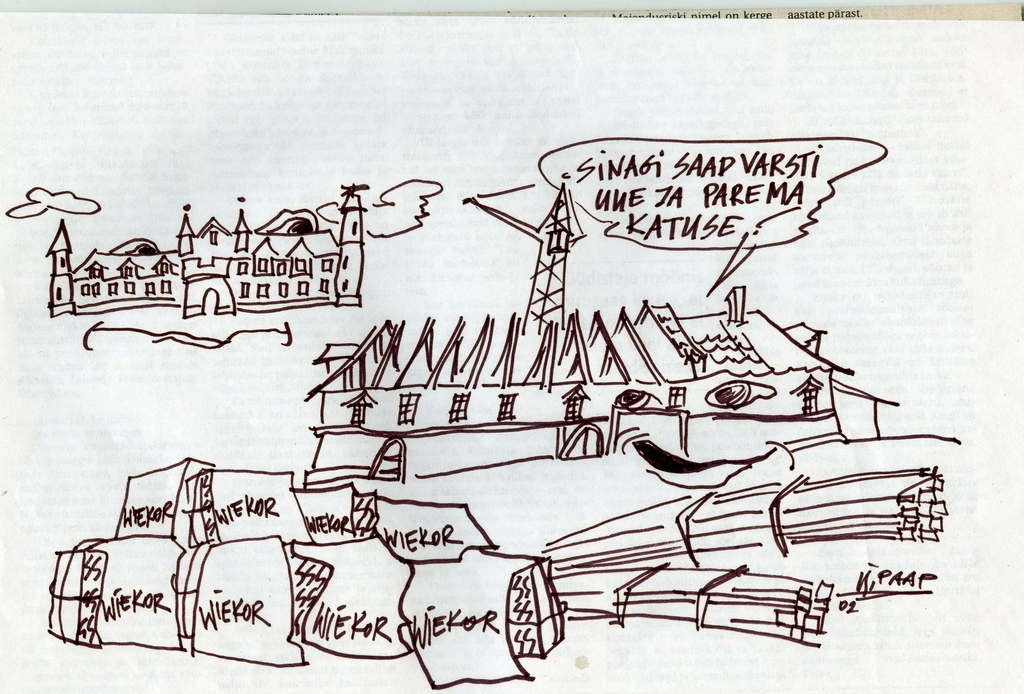 Majandusriski nimel on kerge aastate pärast.
SINAGI SAAD VARSTI
UUE JA PAREMA
KATUSE.
WIEKOR
WIEKOR
WIEKOR
WIEKOR
WIEKOR
WIEKOR
WIEKOR
WIEKOR
H. PAAP
02